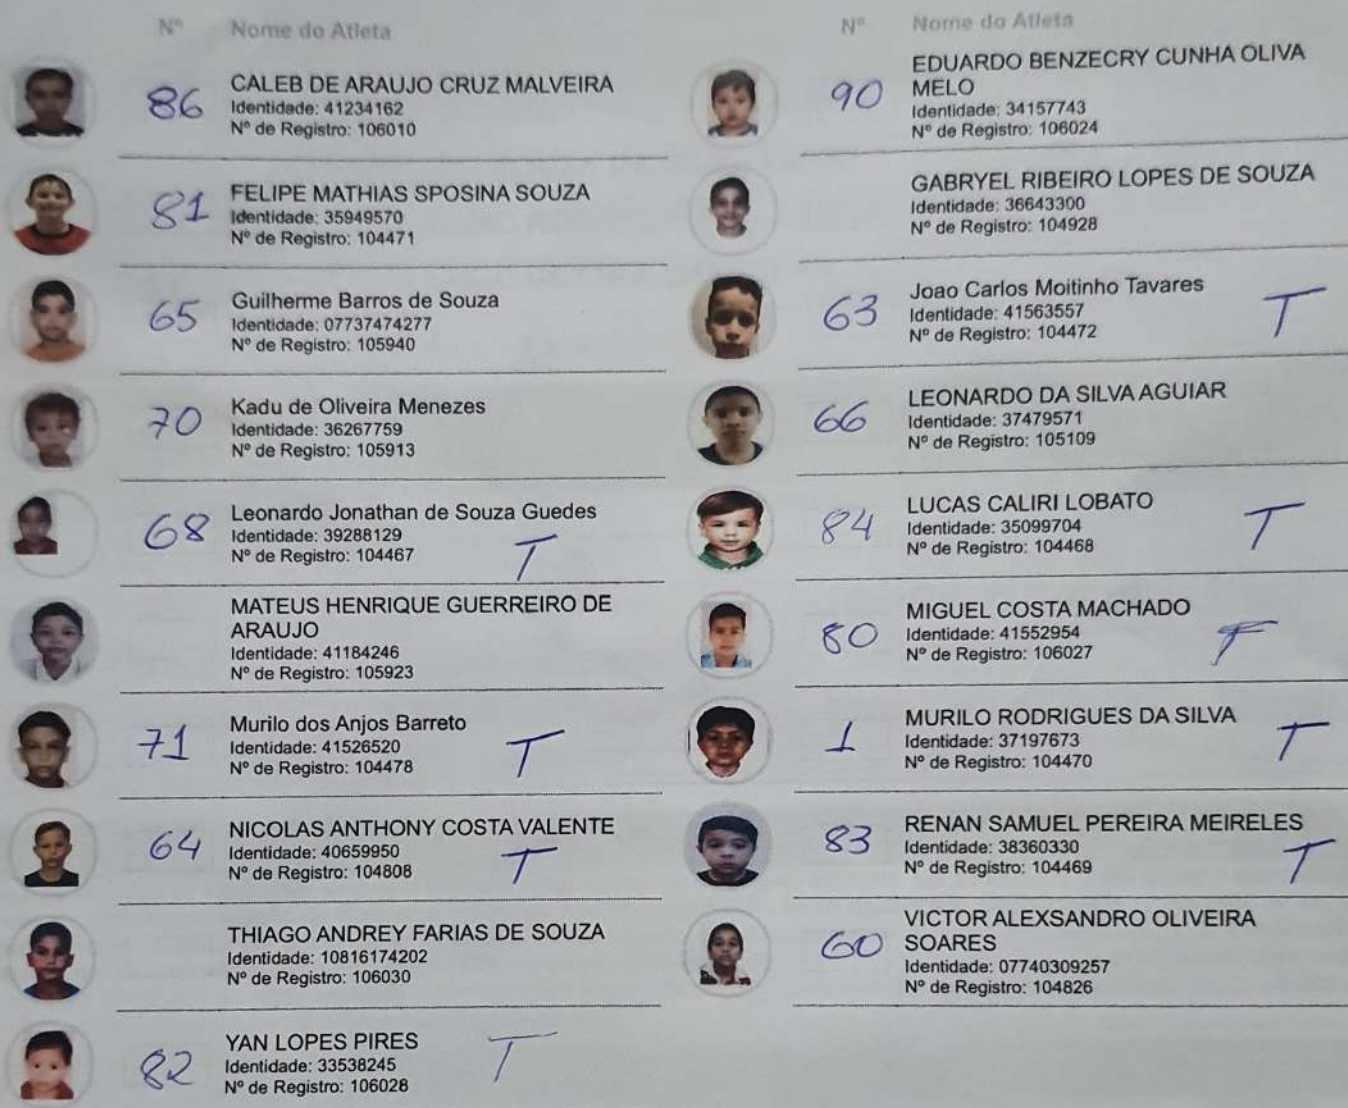 Nº Nome do Atleta
86 CALEB DE ARAUJO CRUZ MALVEIRA
Identidade: 41234162
Nº de Registro: 106010
81 FELIPE MATHIAS SPOSINA SOUZA
Identidade: 35949570
Nº de Registro: 104471
65 Guilherme Barros de Souza
Identidade: 07737474277
Nº de Registro: 105940
70 Kadu de Oliveira Menezes
Identidade: 36267759
Nº de Registro: 105913
68 Leonardo Jonathan de Souza Guedes
Identidade: 39288129
Nº de Registro: 104467 T
MATEUS HENRIQUE GUERREIRO DE
ARAUJO
Identidade: 41184246
Nº de Registro: 105923
71 Murilo dos Anjos Barreto
Identidade: 41526520 T
Nº de Registro: 104478
64 NICOLAS ANTHONY COSTA VALENTE
Identidade: 40659950
Nº de Registro: 104808 T
THIAGO ANDREY FARIAS DE SOUZA
Identidade: 10816174202
Nº de Registro: 106030
82 YAN LOPES PIRES
Identidade: 33538245 T
Nº de Registro: 106028
Nº Nome do Atleta
90 EDUARDO BENZECRY CUNHA OLIVA
MELO
Identidade: 34157743
Nº de Registro: 106024
GABRYEL RIBEIRO LOPES DE SOUZA
Identidade: 36643300
Nº de Registro: 104928
63 Joao Carlos Moitinho Tavares
Identidade: 41563557 T
Nº de Registro: 104472
66 LEONARDO DA SILVA AGUIAR
Identidade: 37479571
Nº de Registro: 105109
84 LUCAS CALIRI LOBATO
Identidade: 35099704 T
Nº de Registro: 104468
80 MIGUEL COSTA MACHADO
Identidade: 41552954
Nº de Registro: 106027
1 MURILO RODRIGUES DA SILVA
Identidade: 37197673 T
Nº de Registro: 104470
83 RENAN SAMUEL PEREIRA MEIRELES
Identidade: 38360330
Nº de Registro: 104469 T
60 VICTOR ALEXSANDRO OLIVEIRA
SOARES
Identidade: 07740309257
Nº de Registro: 104826